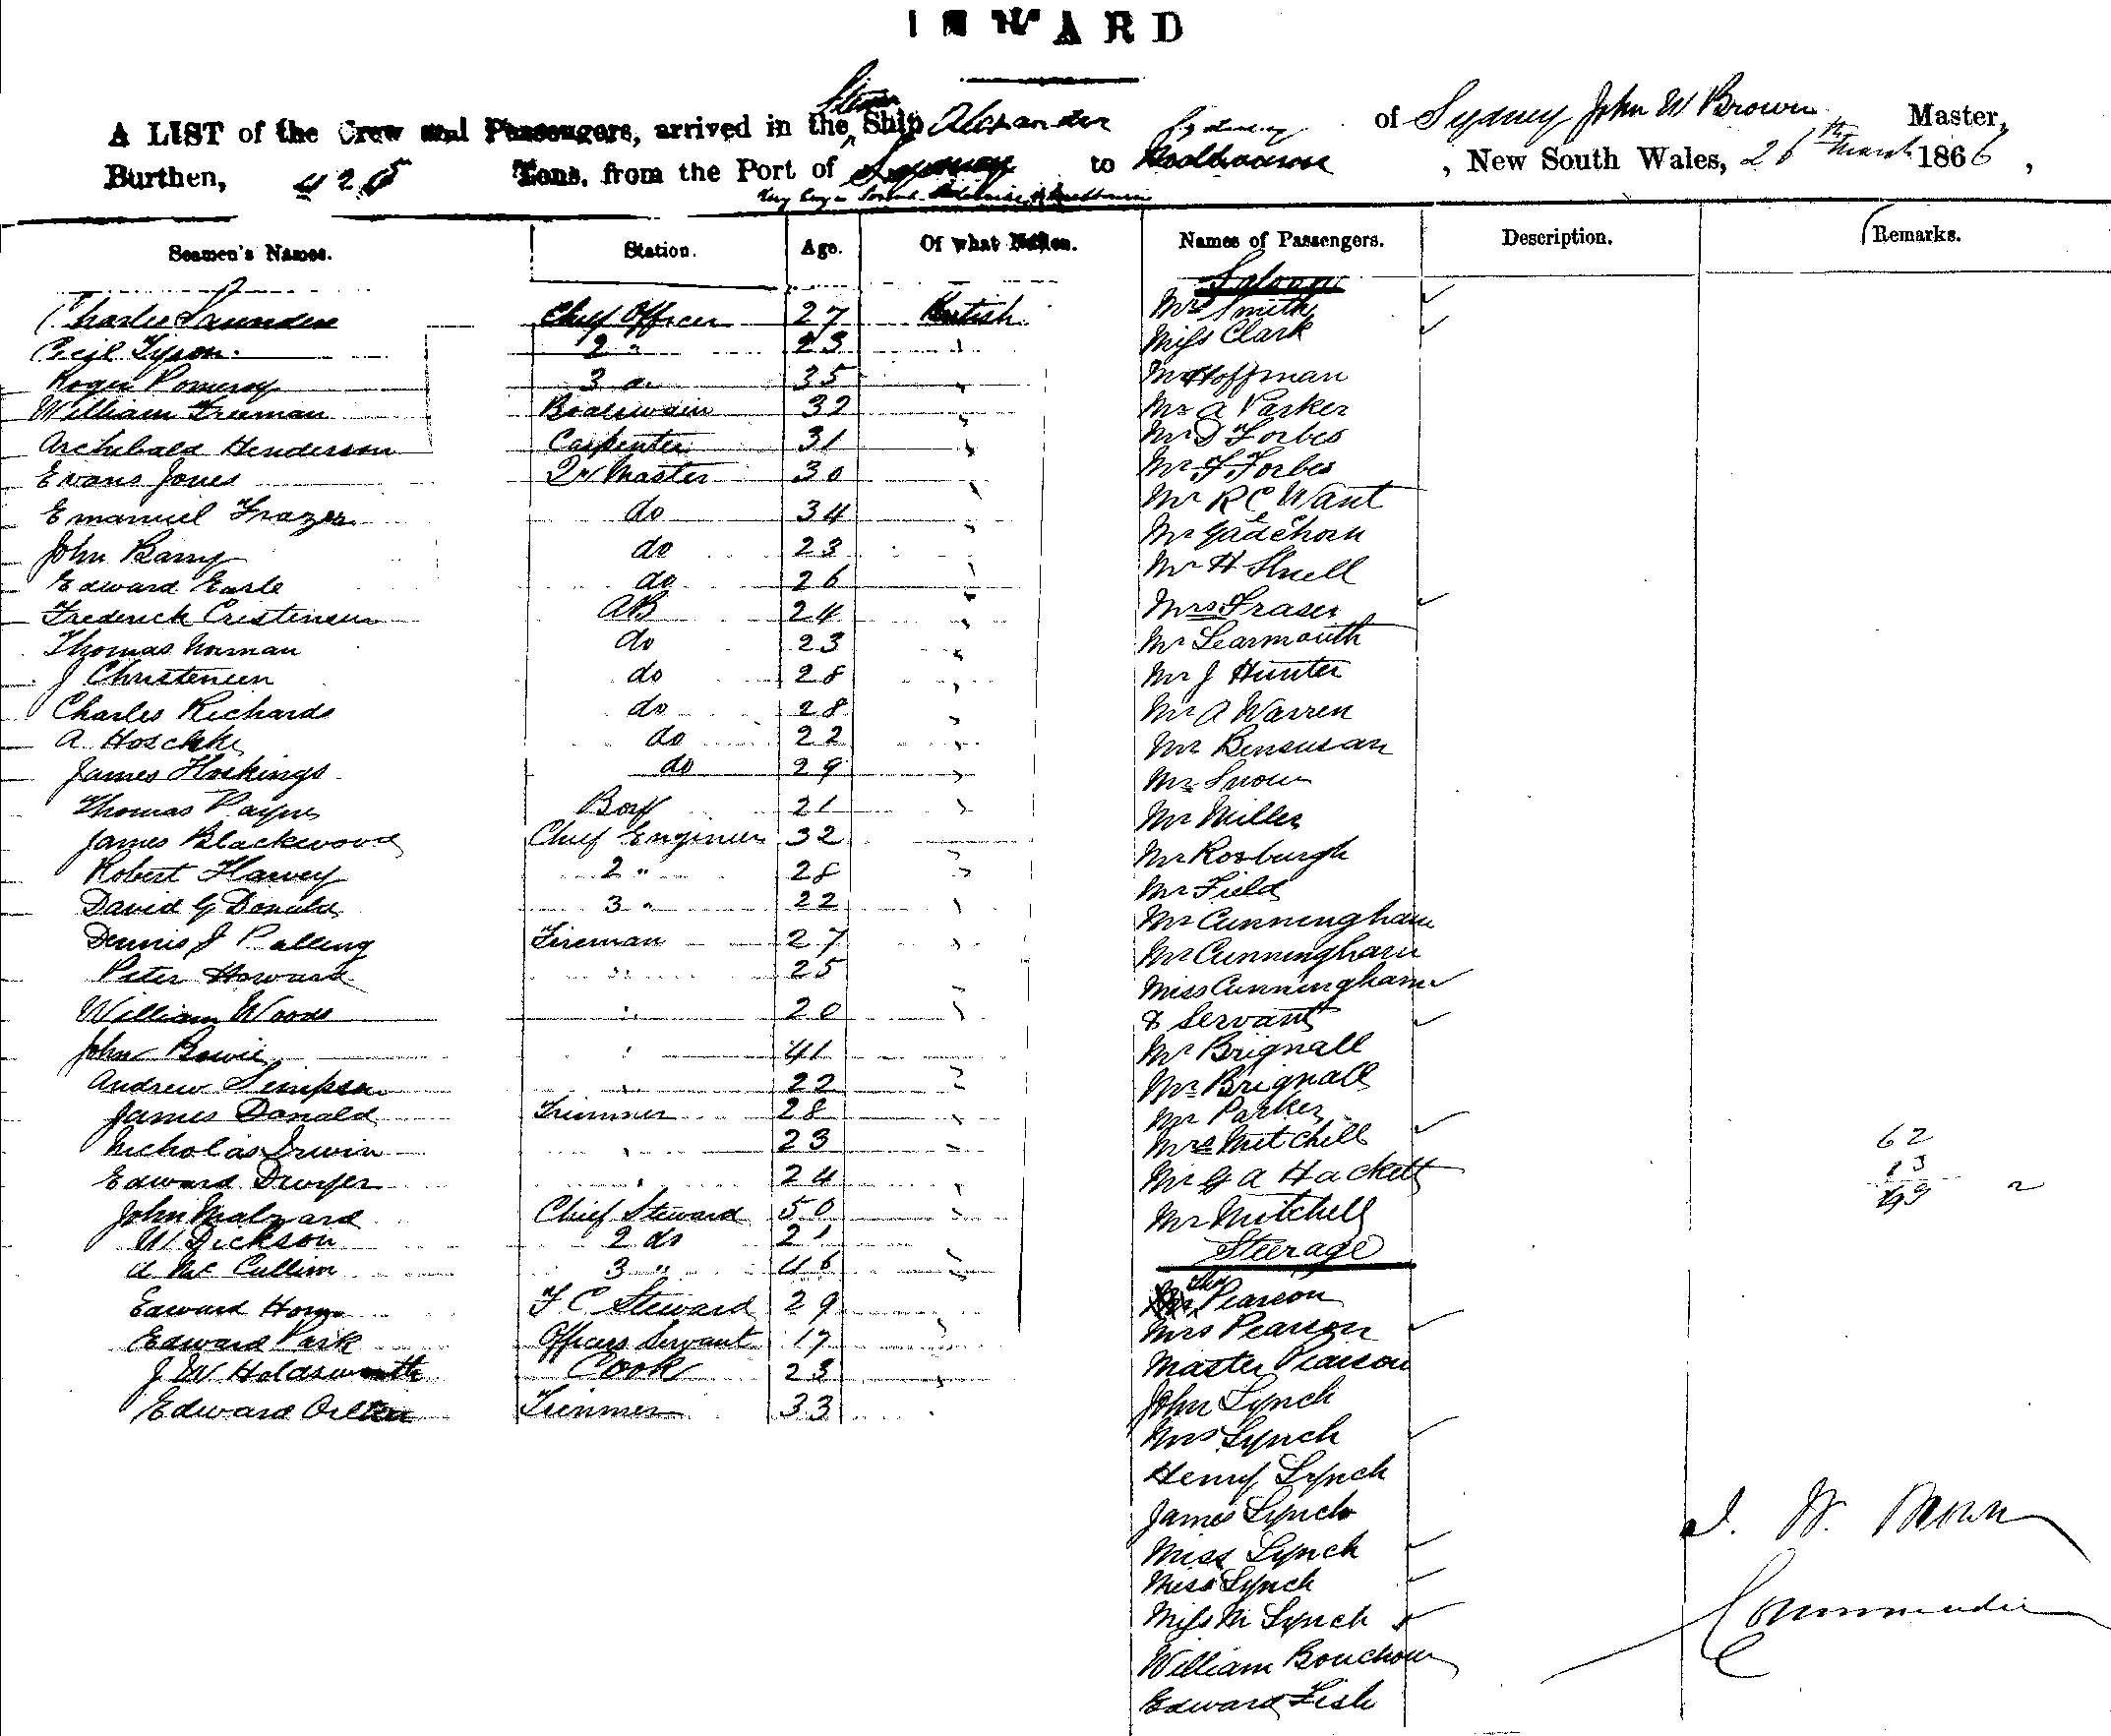 INWARD
A LIST of the Crew and Passengers, arrived in the Steam Ship Alexander of Sydney John W Brown Master,
Burthen, 425 Tons, from the Port of to Sydney, New South Wales, 26th March 1866,
Seamen's Names. Station. Age. Of what Nation. Names of Passengers. Description. Remarks.
Saloon
Charles Saunders Chief Officer 27 British Mrs Smith
Cecil Tyson 2 " 23 " Miss Clark
Roger Pomeroy 3 " 35 " Mr Hoffman
William Freeman Boatswain 32 " Mr A Parker
Archibald Henderson Carpenter 31 " Mr D Forbes
Evans Jones Qr Master 30 " Mr F Forbes
Emanuel Frazer do 34 " Mr R C Want
John Barry do 23 " Mr Gadechorn
Edward Earle do 26 " Mr H
Frederick Cristinsen AB 24 " Mrs Fraser
Thomas Norman do 23 " Mr Learmouth
J Christensen do 28 " Mr J Hunter
Charles Richards do 28 " Mr A Warren
A Hoschke do 22 " Mr Bensusan
James Hockings do 29 " Mr Snow
Thomas Payne Boy 21 " Mr Miller
James Blackwood Chief Engineer 32 " Mr Roxburgh
Robert Harvey 2 " 28 " Mr Field
David G Donald 3 " 22 " Mr Cunningham
Dennis J Palling Fireman 27 " Mr Cunningham
Peter Howard " 25 " Miss Cunningham
William Woods " 20 " & Servant
John Bowie " 41 " Mr Brignall
Andrew Simpson " 22 " Mr Brignall
James Donald Trimmer 28 " Mr Parker
Nicholas Irwin " 23 " Mrs Mitchell 62
Edward Dwyer " 24 " Mr G A Hackett 13
John Malzard Chief Steward 50 " Mr Mitchell
W Dickson 2 do 21 Steerage
A McCullim 3 " 46 "
Edward Horn F C Steward 29 Pearson
Edward Park Officers Servant 17 " Mrs Pearson
J W Holdsworth Cook 23 " Master Pearson
Edward Trimmer 33 " John Lynch
Mrs Lynch
Henry Lynch
James Lynch
Miss Lynch
Miss Lynch
Miss M Lynch
William
Edward Fish
J. W. Brown
Commander